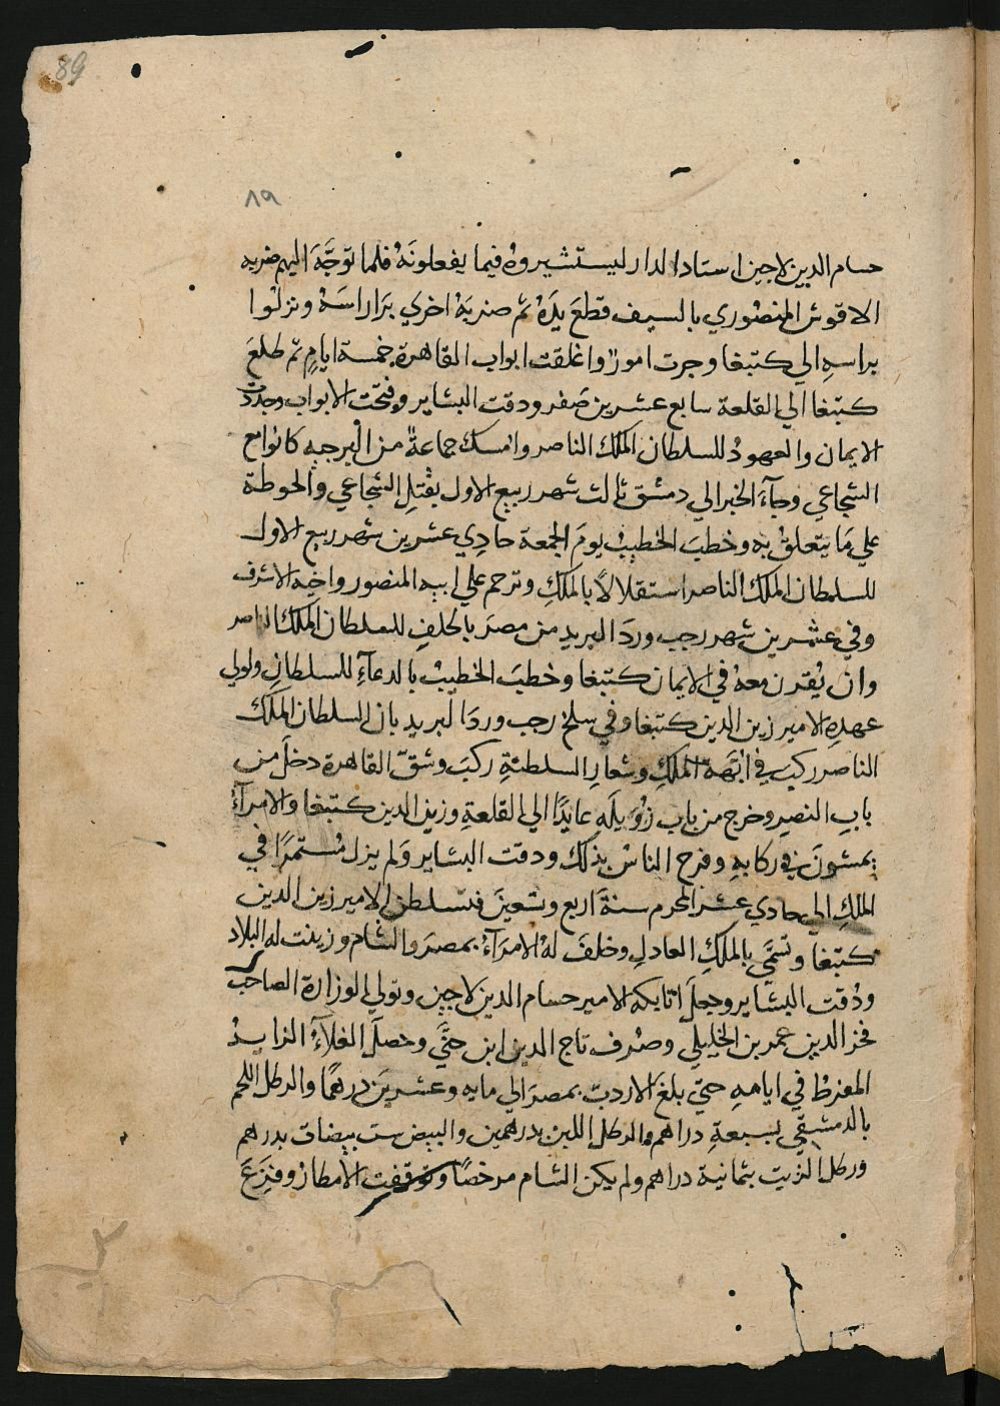 89
٨٩
حسام الدين لاجين استادا لدار ليستشيروهُ فيما يفعلونَهُ فلما توجَّهَ اليهم ضربه
الاقوش المنصوري بالسيف قطعَ يدَهُ ثم ضربَهُ اخري برَا راسَهُ ونزلوا
براسهِ الي كتبغا وجرت امورٌ واغلقت ابواب القاهرة خمسة ايامٍ ثم طلعَ
كتبغا الي القلعة سابع عشرين صَفر ودقت البشاير وفتحت الابواب وجددت
الايمان والعهودُ للسلطان الملك الناصر وامسك جماعةٌ من البرجيهِ كانوا مع
الشجاعي وجآءَ الخبر الي دمشق ثالث شهر ربيع الاول بقتلِ الشجاعي والحوطة
علي مَا يتعلقُ به وخطبَ الخطيبُ يومَ الجمعة حادِي عشرين شهر ربيع الاول
للسلطان الملك الناصر استقلالاً بالملكِ وترحم علي ابيهِ المنصور واخيه الاشرف
وفي عشرين شهر رجب وردَ البريد من مصرَ بالحلفِ للسلطان الملك الناصر
وان يُقرن معهُ في الايمان كتبغا وخطبَ الخطيبُ بالدعآءِ للسلطانِ ولولي
عهدهِ الامير زين الدين كتبغا وفي سلخ رجب وردَ البريد بان السلطان الملك
الناصر ركب في ابَّهة الملكِ وشعارِ السلطنةِ ركبَ وشقّ القاهرة دخلَ من
بابِ النصرِ وخرج من باب زُوَيلَهِ عايدًا الي القلعةِ وزين الدين كتبغا والامرآءُ
يمشونَ في ركابهِ وفرح الناسُ بذلك ودقت البشاير وَلم يزل مُستمرًا في
الملكِ الي حادي عشر المحرم سنةَ اربع وتسعينَ فتسلطن الامير زين الدين
كتبغا وتسمَّي بالملكِ العادلِ وحلفَ لهُ الامرَآءُ بمصرَ والشام وزينت له البلاد
ودُقت البشاير وجعلَ اتابكه الامير حسام الدين لاجين وتولي الوزارة الصاحب
فخر الدين عمر بن الخليلي وصُرف تاج الدين ابن حنَّي وحصلَ الغلآءُ الزايدُ
المفرطُ في ايامهِ حتي بلغَ الاردبّ بمصرَ الي مايه وعشرينَ درهمًا والرطل اللحم
بالدمشقي بسبعةِ دراهم والرطل اللبن بدرهمين والبيض ست بيضات بدرهم
ورطل الزيت بثمانية دراهم ولم يكن الشام مرخصًا وتوقفت الامطار وفزعَ